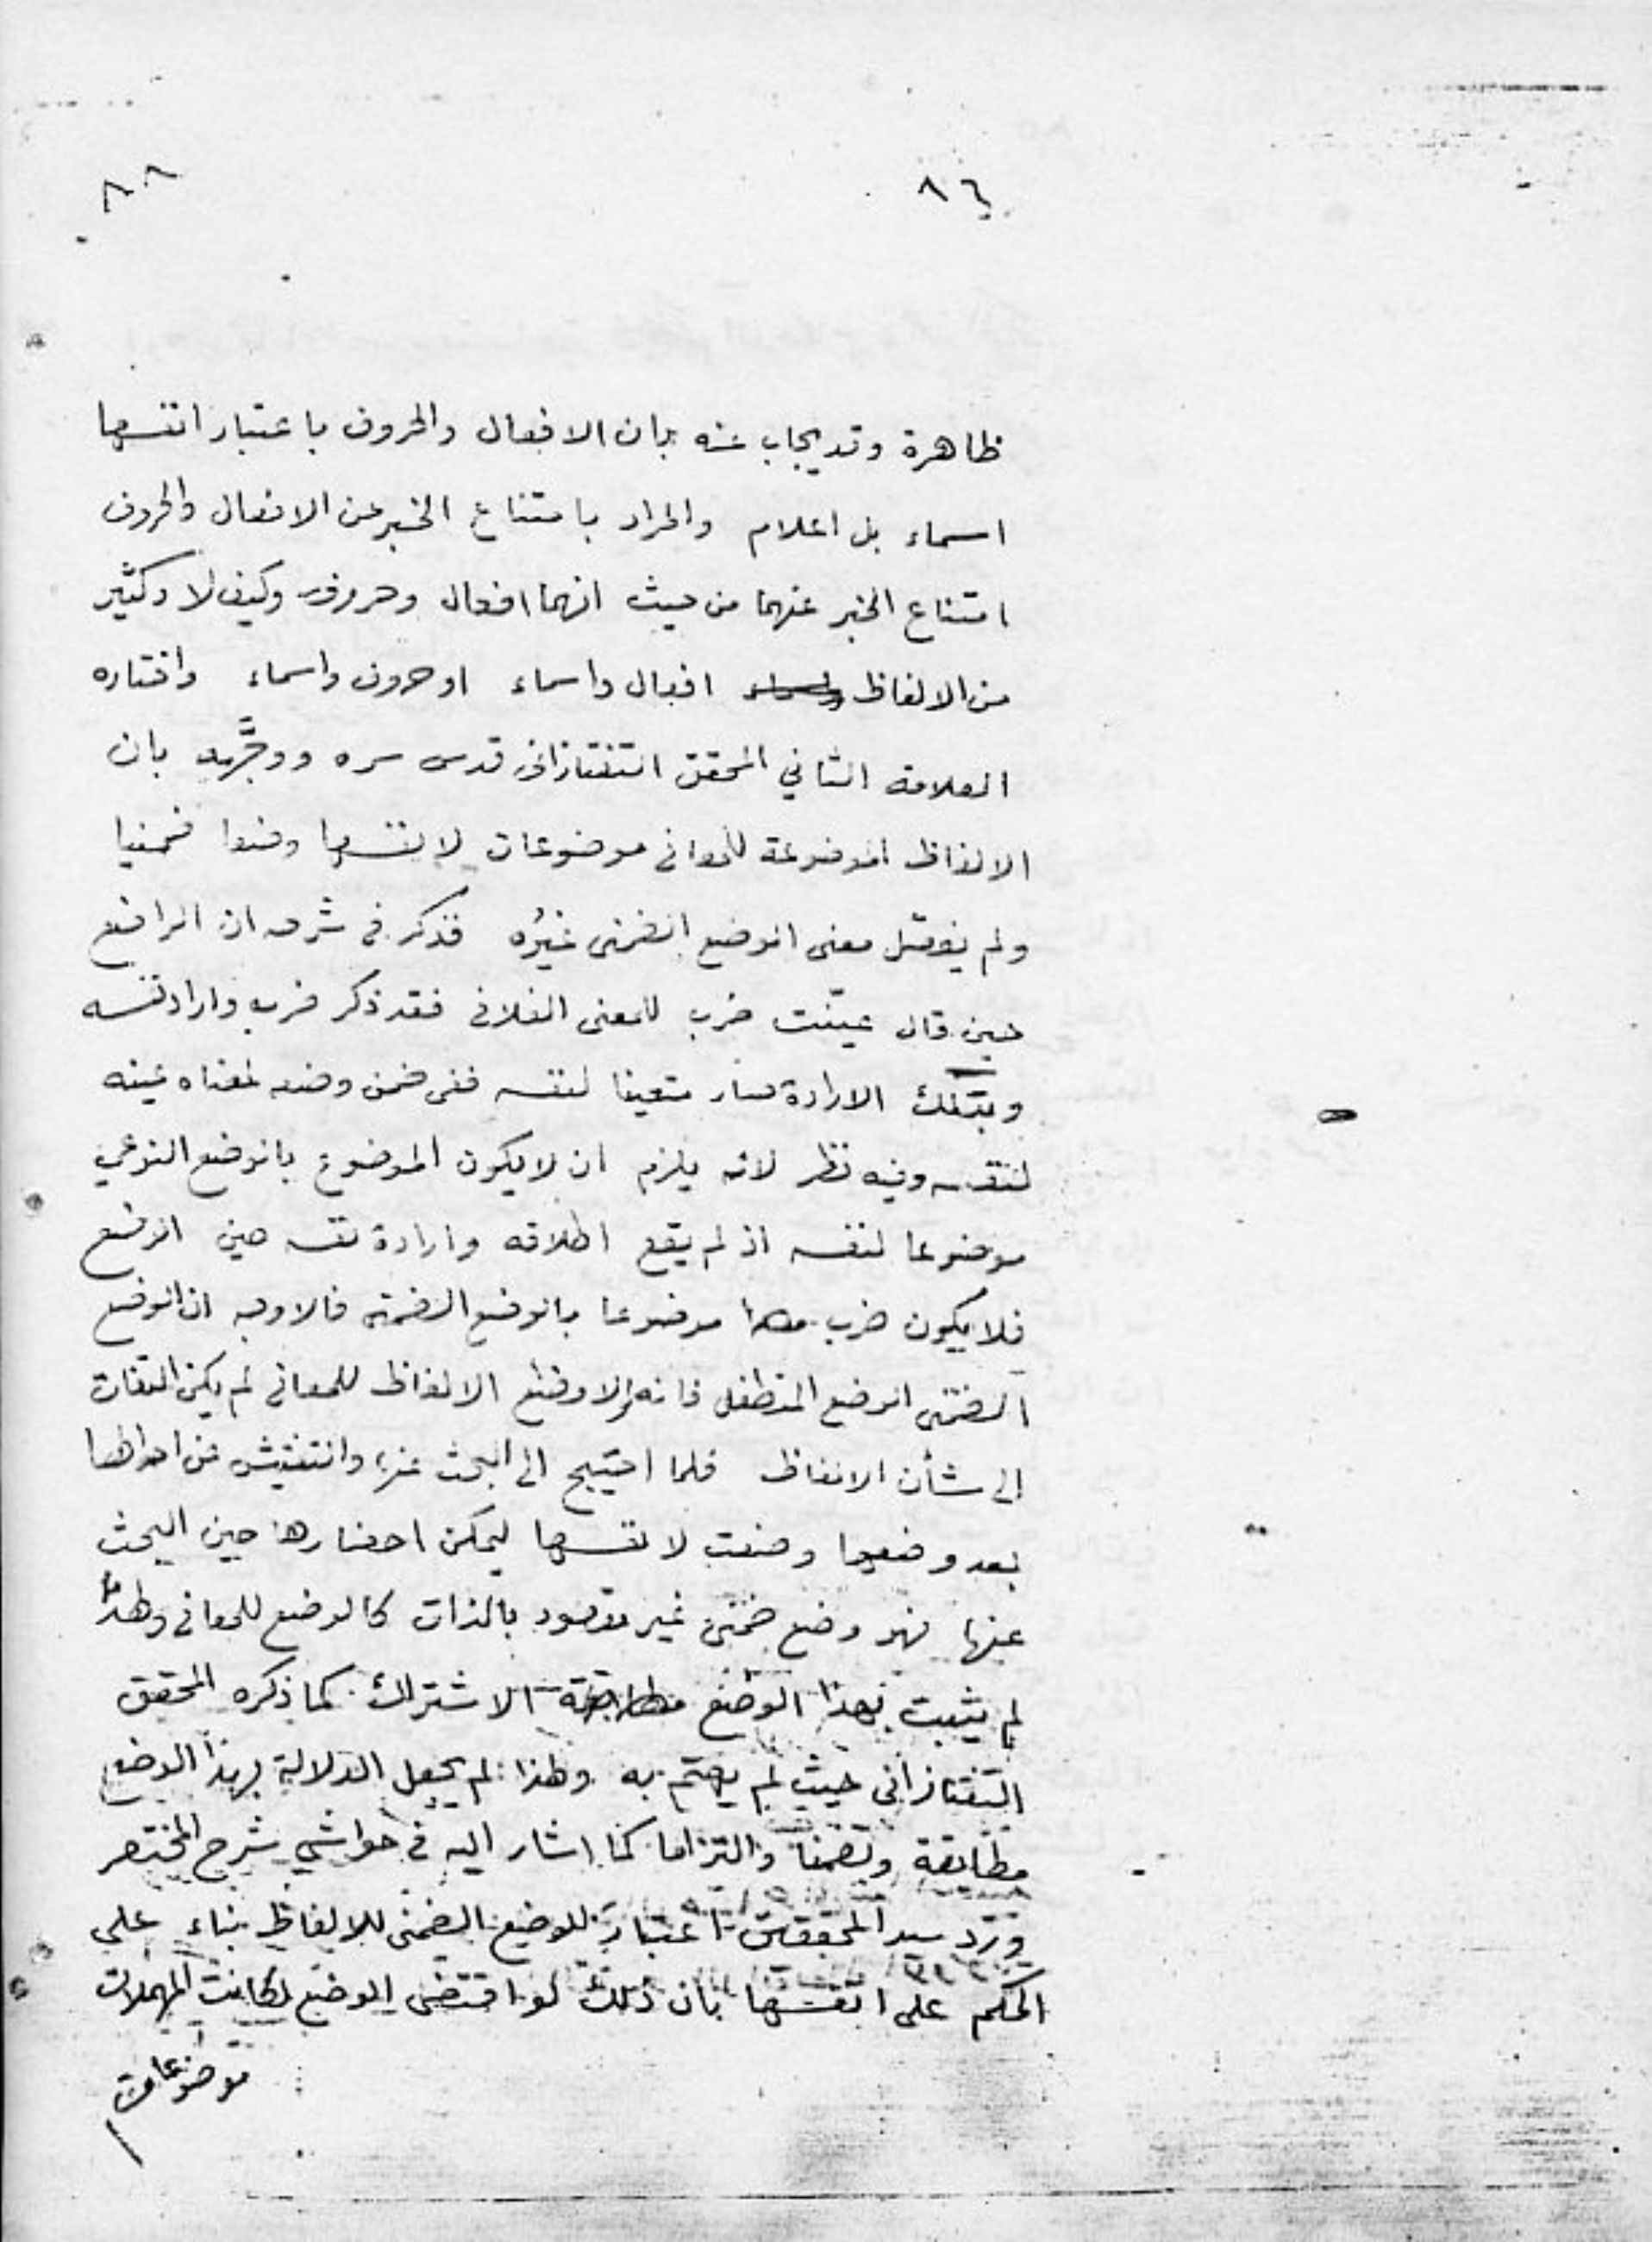 ٨٦ ٨٨
ظاهرة وقد يجاب عنه بان الافعال والحروف باعتبار انفسها
اسماء بل اعلام والمراد بامتناع الخبر عن الافعال والحروف
امتناع الخبر عنهما من حيث انهما افعال وحروف وكيف لا وكثير
من الالفاظ افعال واسماء او حروف واسماء واختاره
العلامة الثاني المحقق التفتازانى قدس سره ووجَّهه بان
الالفاظ الموضوعة للمعانى موضوعات لانفسها وضعا ضمنيا
ولم يفصل معنى الوضع الضمنى غيرُه فذكر فى شرحه ان الواضع
حين قال عيّنت ضرب للمعنى الفلانى فقد ذكر ضرب واراد نفسه
وبتلك الارادة صار متعينا لنفسه ففى ضمن وضعه لمعناه عينه
لنفسه وفيه نظر لانه يلزم ان لا يكون الموضوع بالوضع النوعي
موضوعا لنفسه اذ لم يقع اطلاقه وارادة نفسه حين الوضع
فلا يكون ضرب موضوعا بالوضع الضمنى فالاوجه ان الوضع
الضمنى الوضع المتطفل فانه لاوضع الالفاظ للمعانى لم يكن التفات
الى شأن الالفاظ فلما احتيج الى البحث عنها والتفتيش عن احوالها
بعد وضعها وضعت لانفسها ليمكن احضارها حين البحث
عنها فهو وضع ضمنى غير مقصود بالذات كالوضع للمعانى ولهذا
لم يثبت بهذا الوضع الاشتراك كما ذكره المحقق
التفتازانى حيث لم يهتم به ولهذا لم يجعل الدلالة بهذا الوضع
مطابقة وتضمنا والتزاما كما اشار اليه فى حواشي شرح المختصر
وردّ سيد المحققين اعتبار الوضع الضمنى للالفاظ بناء على
الحكم على انفسها بان ذلك لو اقتضى الوضع لكانت المهملات
موضوعات